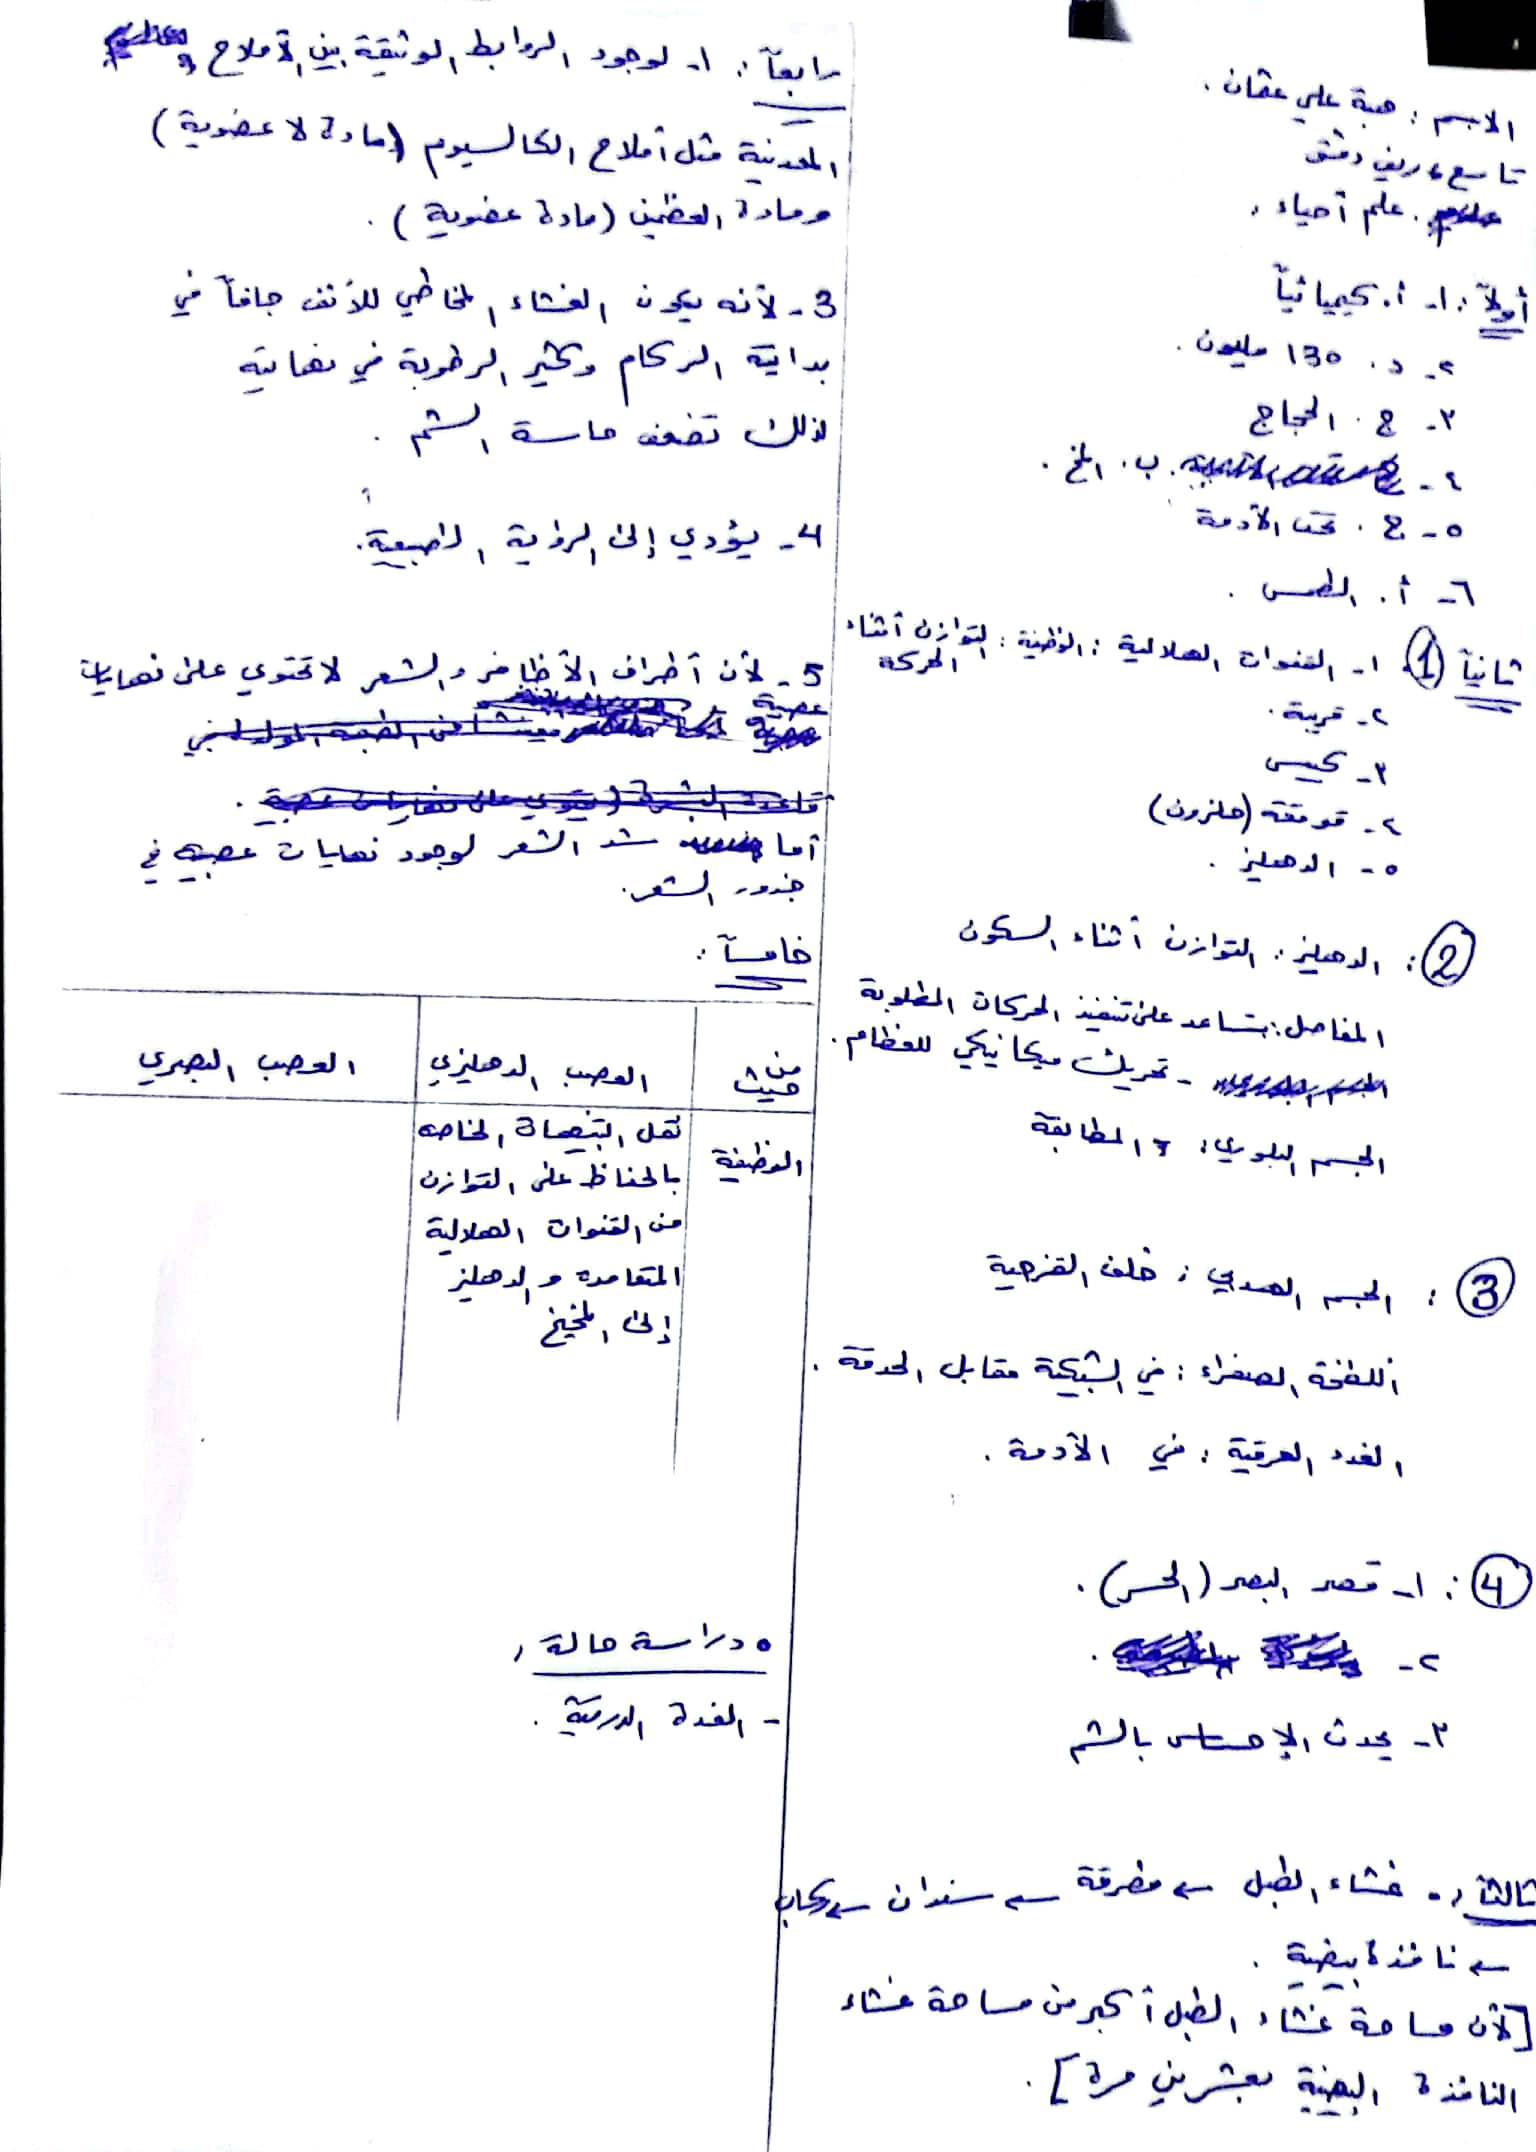 الاسم : هبة علي عثمان .
تاسع ، ريف دمشق
علم أحياء .
أولاً : ١- أ. كيميائياً
٢- د . 130 مليون .
٣- ج . الحجاج
٤- ب . المخ .
٥- ج . تحت الأدمة
٦- أ . الطمس .
ثانياً 1 ١- القنوات الهلالية : الوظيفة : التوازن أثناء الحركة
٢- قربة .
٣- كييس
٤- قوقعة (حلزون)
٥- الدهليز .
2 : الدهليز : التوازن أثناء السكون
المفاصل : تساعد على تنفيذ الحركات المطلوبة
- تحريك ميكانيكي للعظام .
الجسم البلوري : المطابقة
3 : الجسم الهدبي : خلف القزحية
اللطخة الصفراء : في الشبكية مقابل الحدقة .
الغدد العرقية : في الأدمة .
4 : ١- قصر البصر (الحسر) .
٢-
٣- يحدث الإحساس بالشم
ثالثاً : . غشاء الطبل ← مطرقة ← سندان ← ركاب
← نافذة بيضية .
[لأن مساحة غشاء الطبل أكبر من مساحة غشاء
النافذة البيضية بعشرين مرة] .
رابعاً : ١- لوجود الروابط الوثيقة بين الأملاح
المعدنية مثل أملاح الكالسيوم (مادة لا عضوية)
ومادة العظمين (مادة عضوية) .
3- لأنه يكون الغشاء المخاطي للأنف جافاً في
بداية الزكام وكثير الرطوبة في نهايته
لذلك تضعف حاسة الشم .
4- يؤدي إلى الرؤية الطبيعية .
5- لأن أطراف الأظافر والشعر لا تحتوي على نهايات
عصبية
أما شد الشعر لوجود نهايات عصبية في
جذور الشعر .
خامساً :
من حيث العصب الدهليزي العصب البصري
الوظيفة نقل التنبيهات الخاصة
بالحفاظ على التوازن
من القنوات الهلالية
المتعامدة والدهليز
إلى المخيخ
• دراسة حالة :
- الغدة الدرقية .